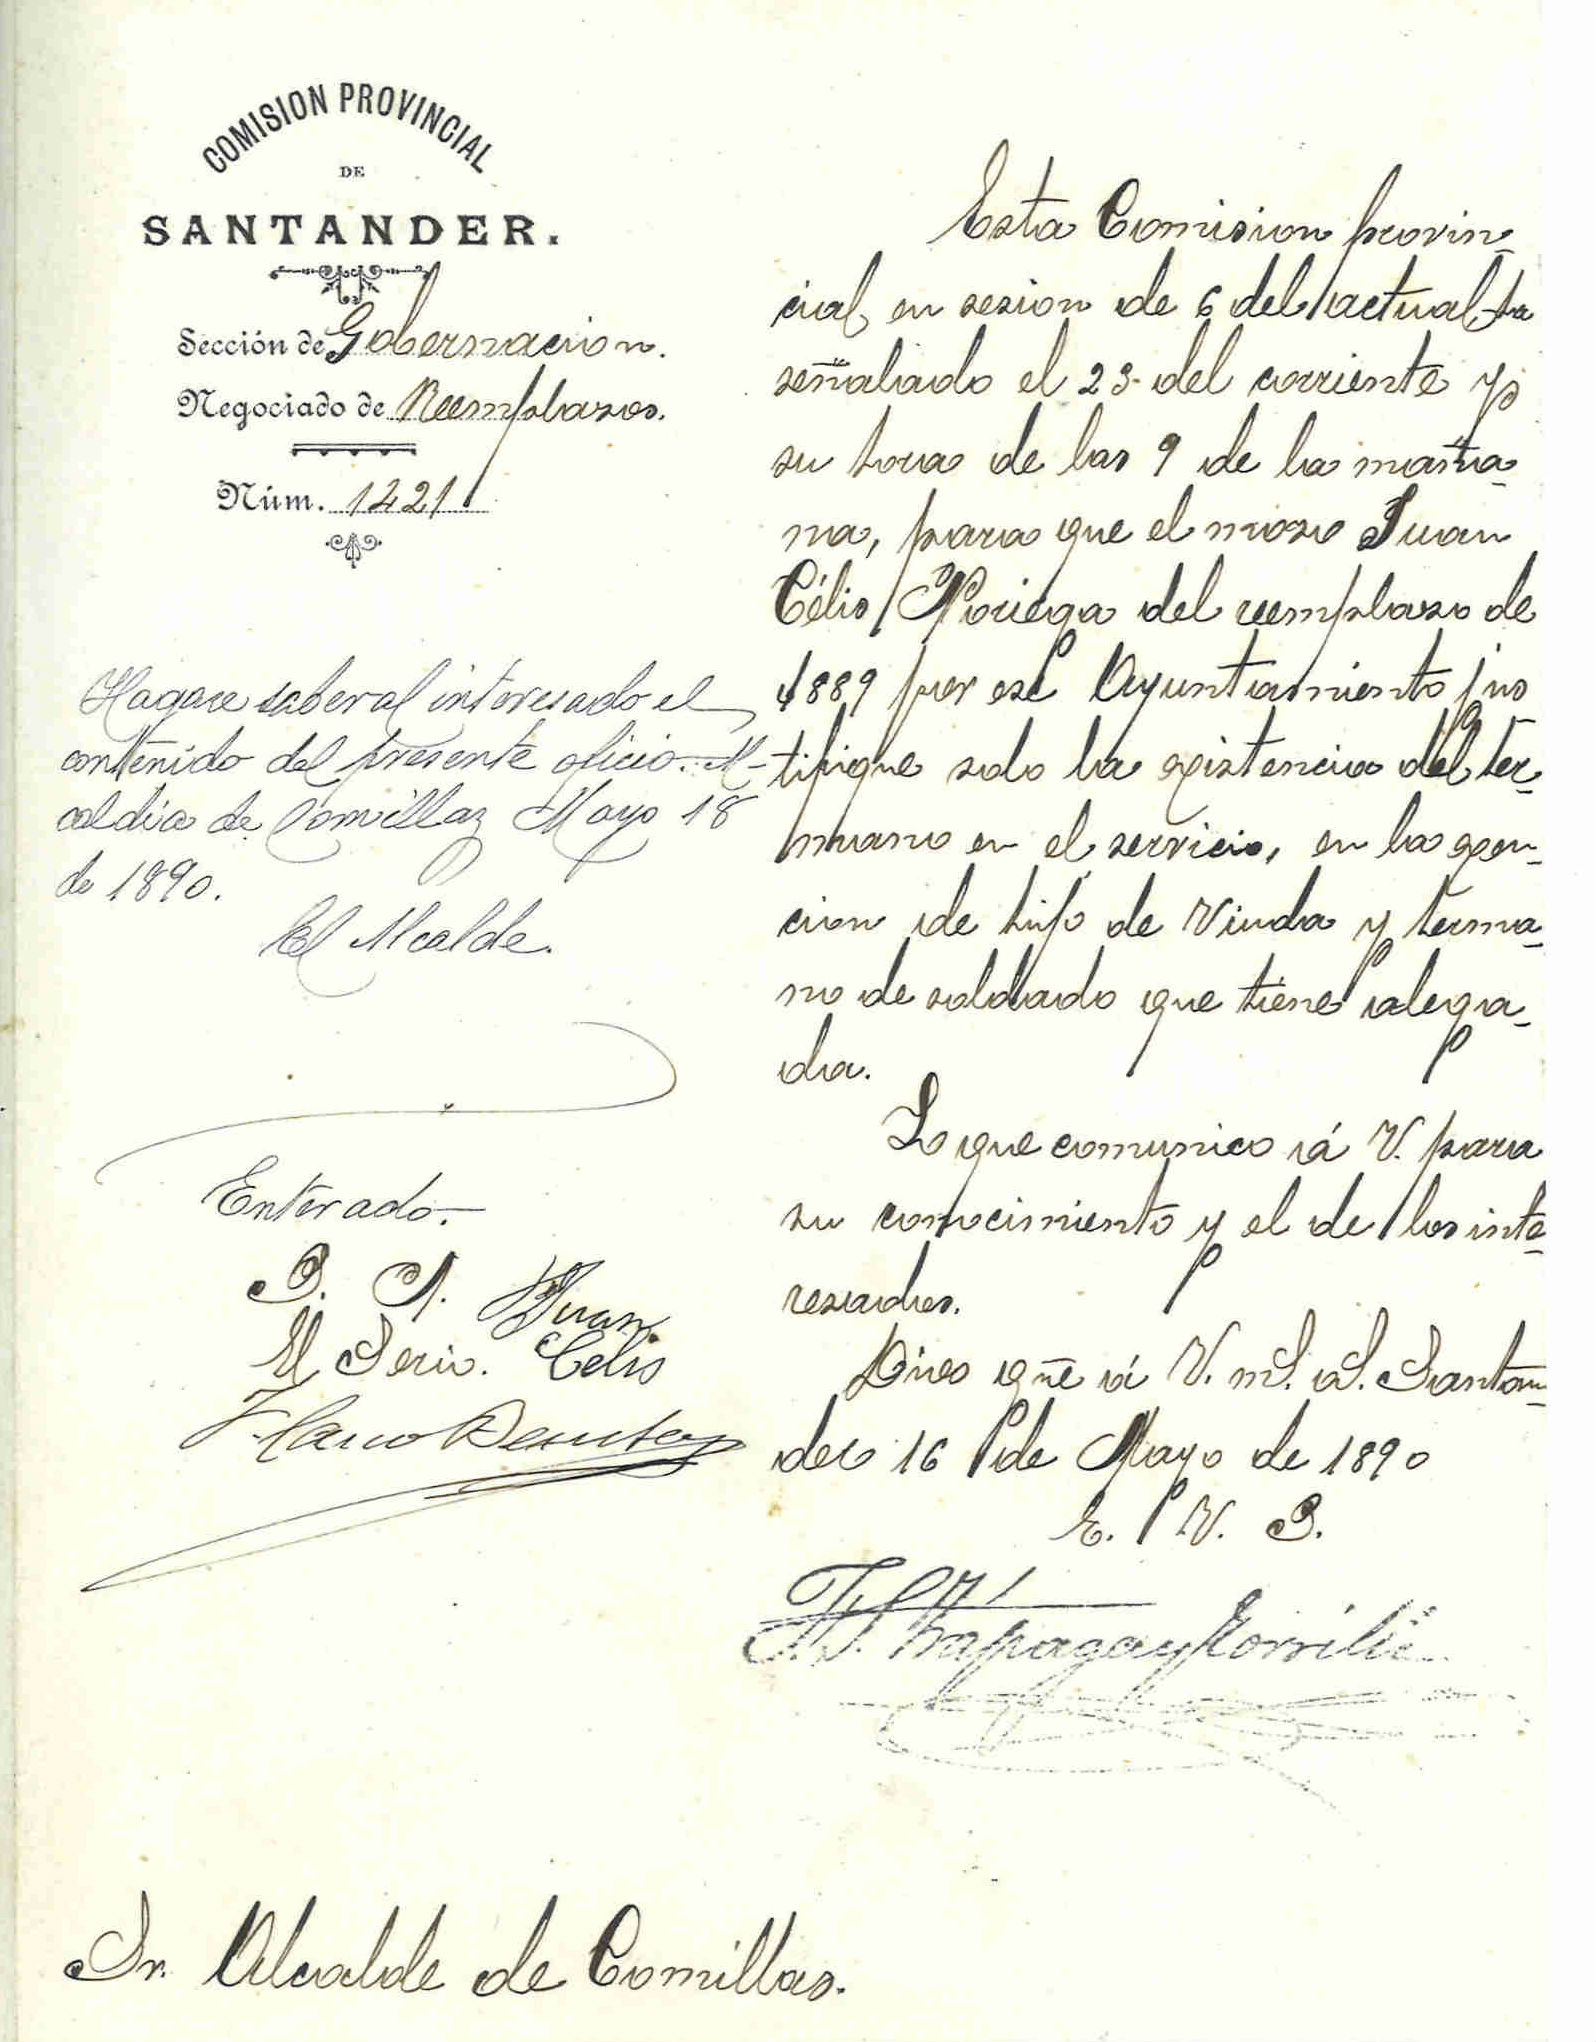 COMISION PROVINCIAL
DE
SANTANDER.
Sección de Gobernacion.
Negociado de Reemplazos.
Núm. 1421
Esta Comision provin-
cial en sesion de 6 del actual ha
señalado el 23 del corriente y
su hora de las 9 de la maña-
na, para que el mozo Juan
Célis Noriega del reemplazo de
1889 por ese Ayuntamiento jus
tifique solo la existencia del her-
mano en el servicio, en la exen-
cion de hijo de Viuda y herma-
no de soldado que tiene alega-
da.
Lo que comunico á V. para
su conocimiento y el de los inte-
resados.
Dios gũe á V. m.s. a.s. Santan-
der 16 de Mayo de 1890
E. V. P.
Hagase saber al interesado el
contenido del presente oficio. Al-
caldia de Comillas Mayo 18
de 1890.
El Alcalde.
Enterado.
P. A.
Juan
El Serio. Celis
Sr. Alcalde de Comillas.